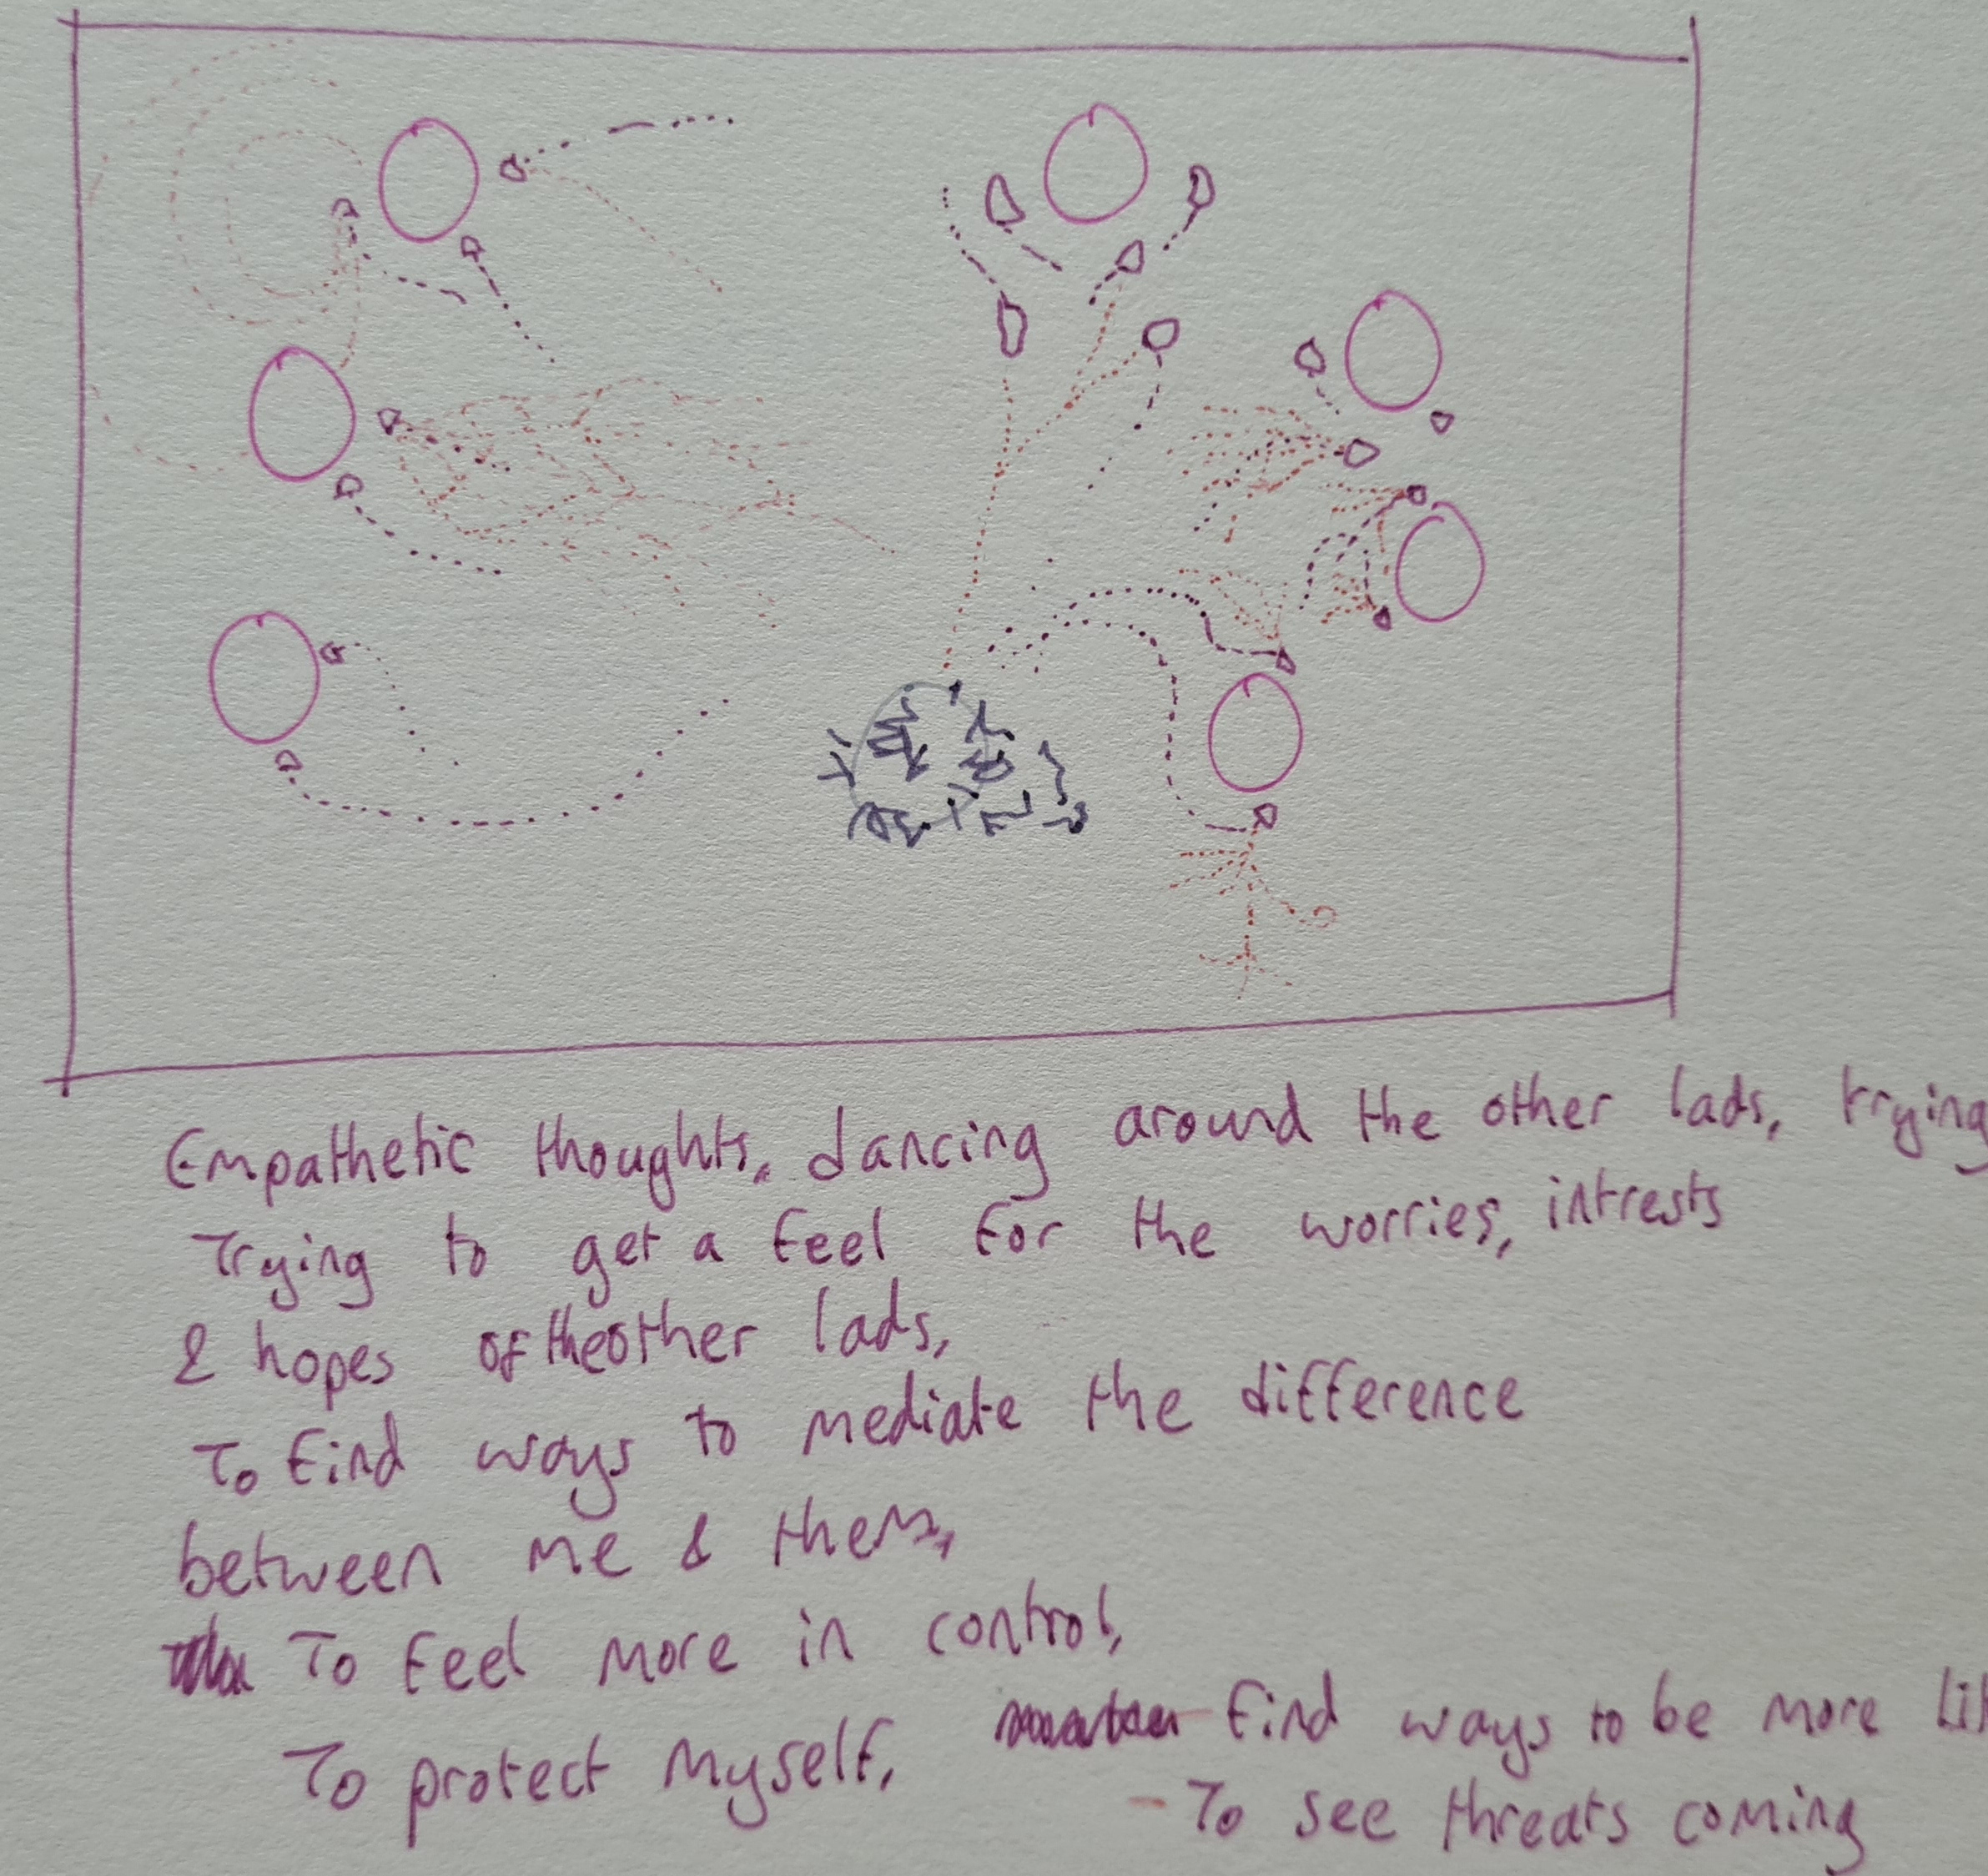 Empathetic thoughts, dancing around the other lads, trying
Trying to get a feel for the worries, intrests
& hopes of the other lads,
To find ways to mediate the difference
between me & them,
To feel more in control,
To protect myself, - find ways to be more
- To see threats coming